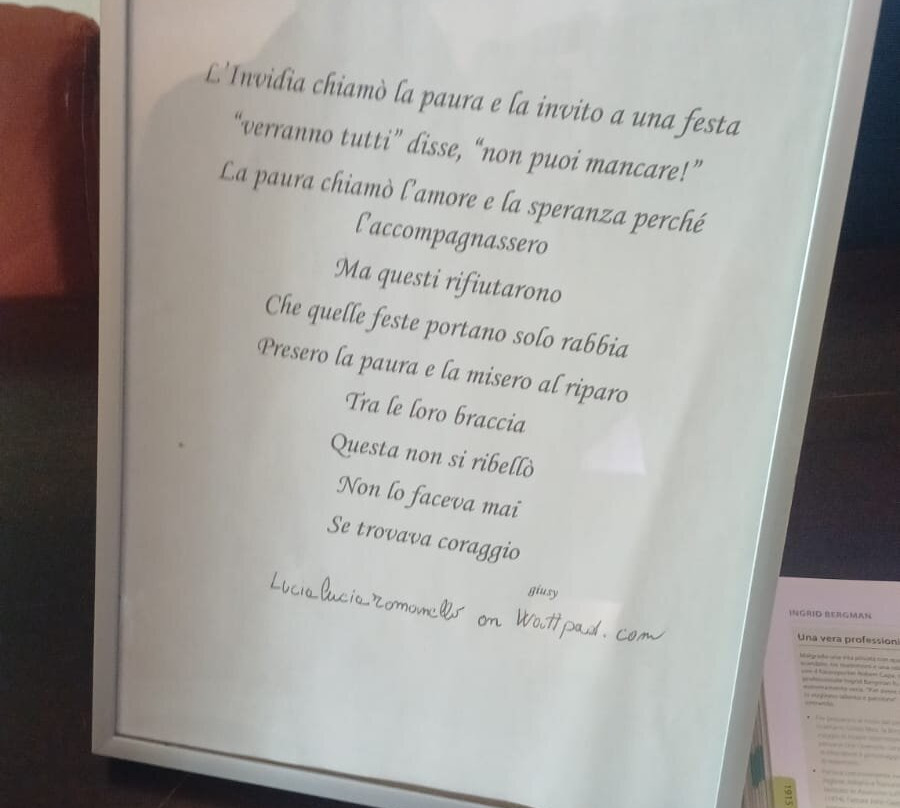 L'Invidia chiamò la paura e la invito a una festa
“verranno tutti” disse, “non puoi mancare!”
La paura chiamò l'amore e la speranza perché
l'accompagnassero
Ma questi rifiutarono
Che quelle feste portano solo rabbia
Presero la paura e la misero al riparo
Tra le loro braccia
Questa non si ribellò
Non lo faceva mai
Se trovava coraggio
giusy
on Wattpad.com
INGRID BERGMAN
Una vera professioni
1915